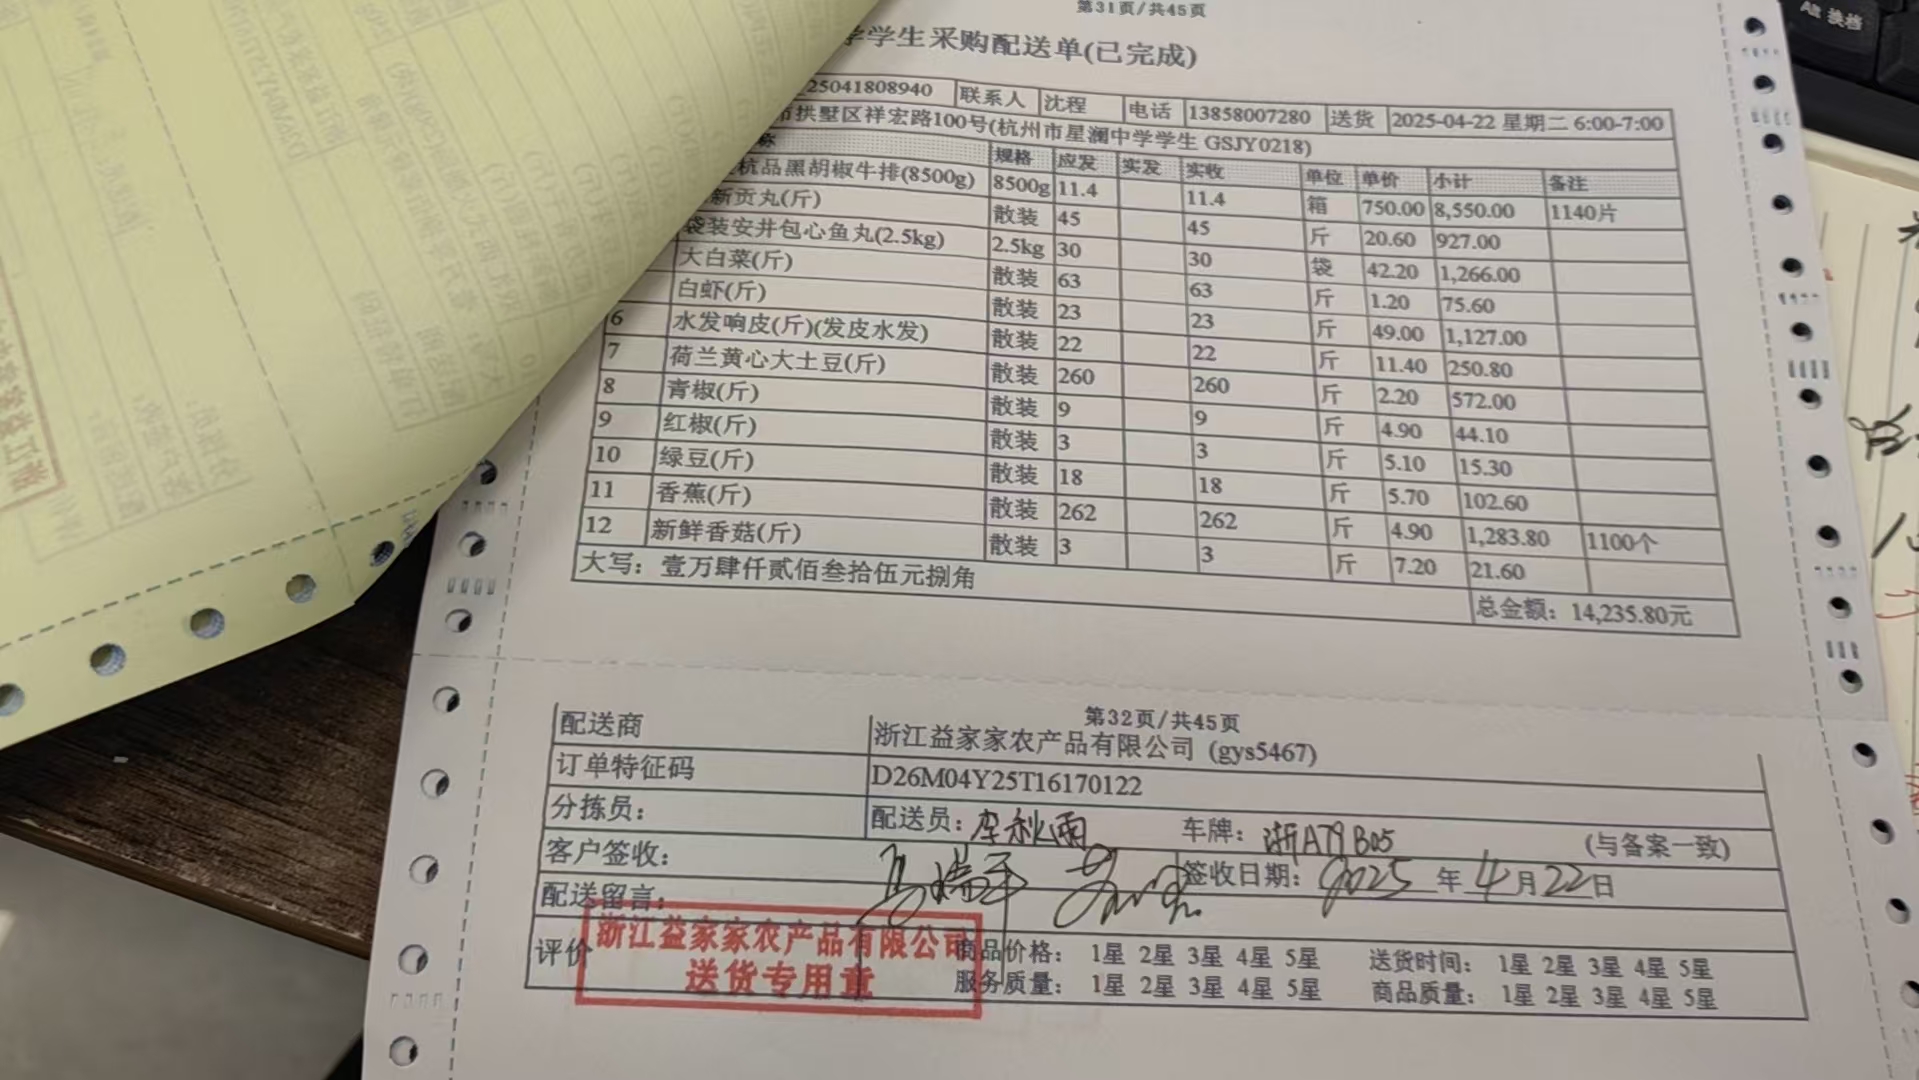 第31页/共45页
学生采购配送单(已完成)
25041808940 联系人 沈程 电话 13858007280 送货 2025-04-22 星期二 6:00-7:00
拱墅区祥宏路100号(杭州市星澜中学学生 GSJY0218)
称 规格 应发 实发 实收 单位 单价 小计 备注
杭品黑胡椒牛排(8500g) 8500g 11.4 11.4 箱 750.00 8,550.00 1140片
新贡丸(斤) 散装 45 45 斤 20.60 927.00
袋装安井包心鱼丸(2.5kg) 2.5kg 30 30 袋 42.20 1,266.00
大白菜(斤) 散装 63 63 斤 1.20 75.60
白虾(斤) 散装 23 23 斤 49.00 1,127.00
6 水发响皮(斤)(发皮水发) 散装 22 22 斤 11.40 250.80
7 荷兰黄心大土豆(斤) 散装 260 260 斤 2.20 572.00
8 青椒(斤) 散装 9 9 斤 4.90 44.10
9 红椒(斤) 散装 3 3 斤 5.10 15.30
10 绿豆(斤) 散装 18 18 斤 5.70 102.60
11 香蕉(斤) 散装 262 262 斤 4.90 1,283.80 1100个
12 新鲜香菇(斤) 散装 3 3 斤 7.20 21.60
大写：壹万肆仟贰佰叁拾伍元捌角
总金额：14,235.80元
第32页/共45页
配送商 浙江益家家农产品有限公司 (gys5467)
订单特征码 D26M04Y25T16170122
分拣员： 配送员：李秋雨 车牌：浙A79B05 (与备案一致)
客户签收： 签收日期：2025 年 4 月 22 日
配送留言：
评价 商品价格： 1星 2星 3星 4星 5星 送货时间： 1星 2星 3星 4星 5星
服务质量： 1星 2星 3星 4星 5星 商品质量： 1星 2星 3星 4星 5星
浙江益家家农产品有限公司
送货专用章
Alt 换档